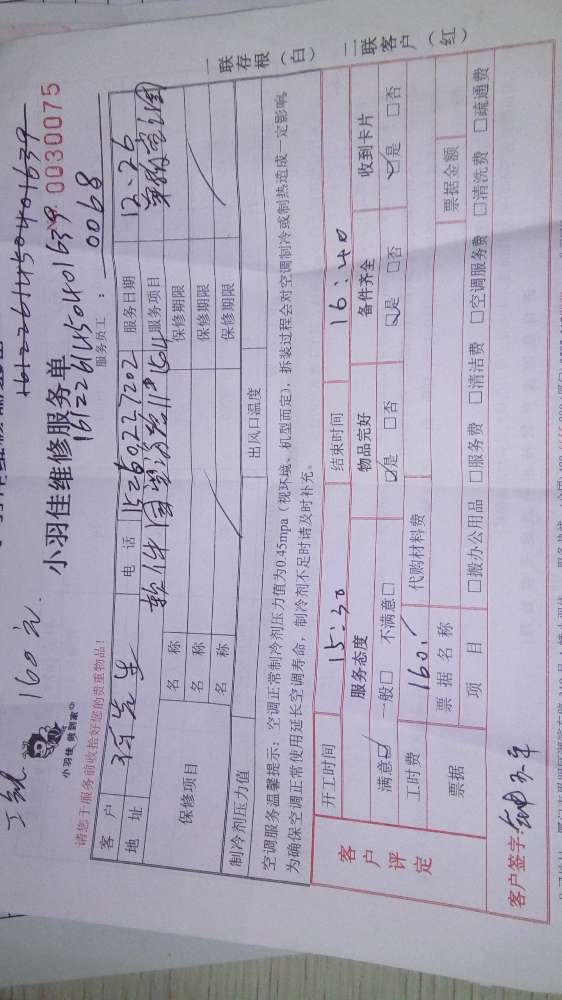 161226145040163​9
丁
160元.
161226145040​1639
小羽佳 做到家
小羽佳维修服务单
0030075
请您于服务前收拾好您的贵重物品!
服务员工: 0068
客户 先生 电话 15260227202 服务日期 12.26
地址 软件园 服务项目
保修项目 名称 保修期限
名称 保修期限
名称 保修期限
制冷剂压力值 出风口温度
空调服务温馨提示: 空调正常制冷剂压力值为0.45mpa(视环境、机型而定),拆装过程会对空调制冷或制热造成一定影响,
为确保空调正常使用延长空调寿命,制冷剂不足时请及时补充。
一联存根(白) 二联客户(红)
客户评定
开工时间 15:30 结束时间 16:40
服务态度 物品完好 备件齐全 收到卡片
满意☑ 一般□ 不满意□ ☑是 □否 ☑是 □否 ☑是 □否
工时费 160. 代购材料费
票据 票据名称 票据金额
项目 □搬办公用品 □服务费 □清洁费 □空调服务费 □清洗费 □疏通费
客户签字: